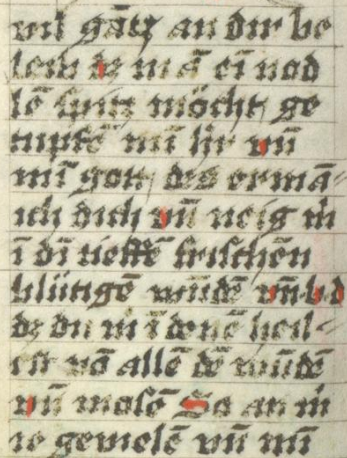 nit gātz an dir be
leib dz m ā ei nod
lē spitz möcht ge
tupfē mī hr vn̄
mī gott des ermā-
ich dich vn̄ neig m̄
ī dī tieffē frischēn
blüitigē wūdē vn̄ b d
dz du m̄ ī denē heil-
est vō allē dē wūdē
vn̄ masē So an m̄
ie gewesē vn̄ mī